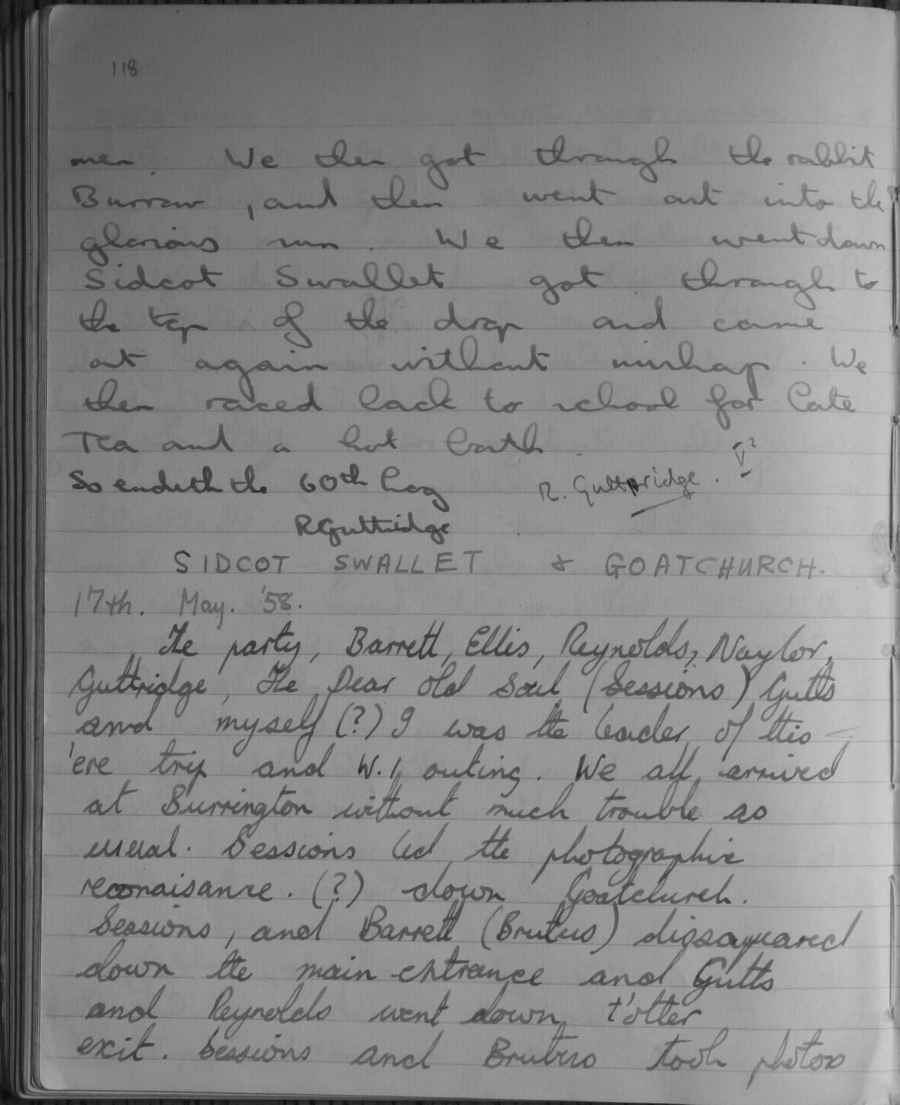 118
men. We then got through the rabbit
Burrow, and then went out into the
glorious sun. We then went down
Sidcot Swallet got through to
the top of the drop and came
out again without mishap. We
then raced back to school for late
Tea and a hot bath.
So endeth the 60th log R. Guttridge.
RGuttridge
SIDCOT SWALLET & GOATCHURCH.
17th. May. '58.
The party, Barrett, Ellis, Reynolds, Naylor,
Guttridge, The Dear old Soul (Sessions) Gutts
and myself (?) I was the leader of this
'ere trip and W.1, outing. We all arrived
at Burrington without much trouble as
usual. Sessions led the photographic
reconaisance. (?) down Goatchurch.
Sessions, and Barrett (Brutus) disapeared
down the main entrance and Gutts
and Reynolds went down t'otter
exit. Sessions and Brutus took photos